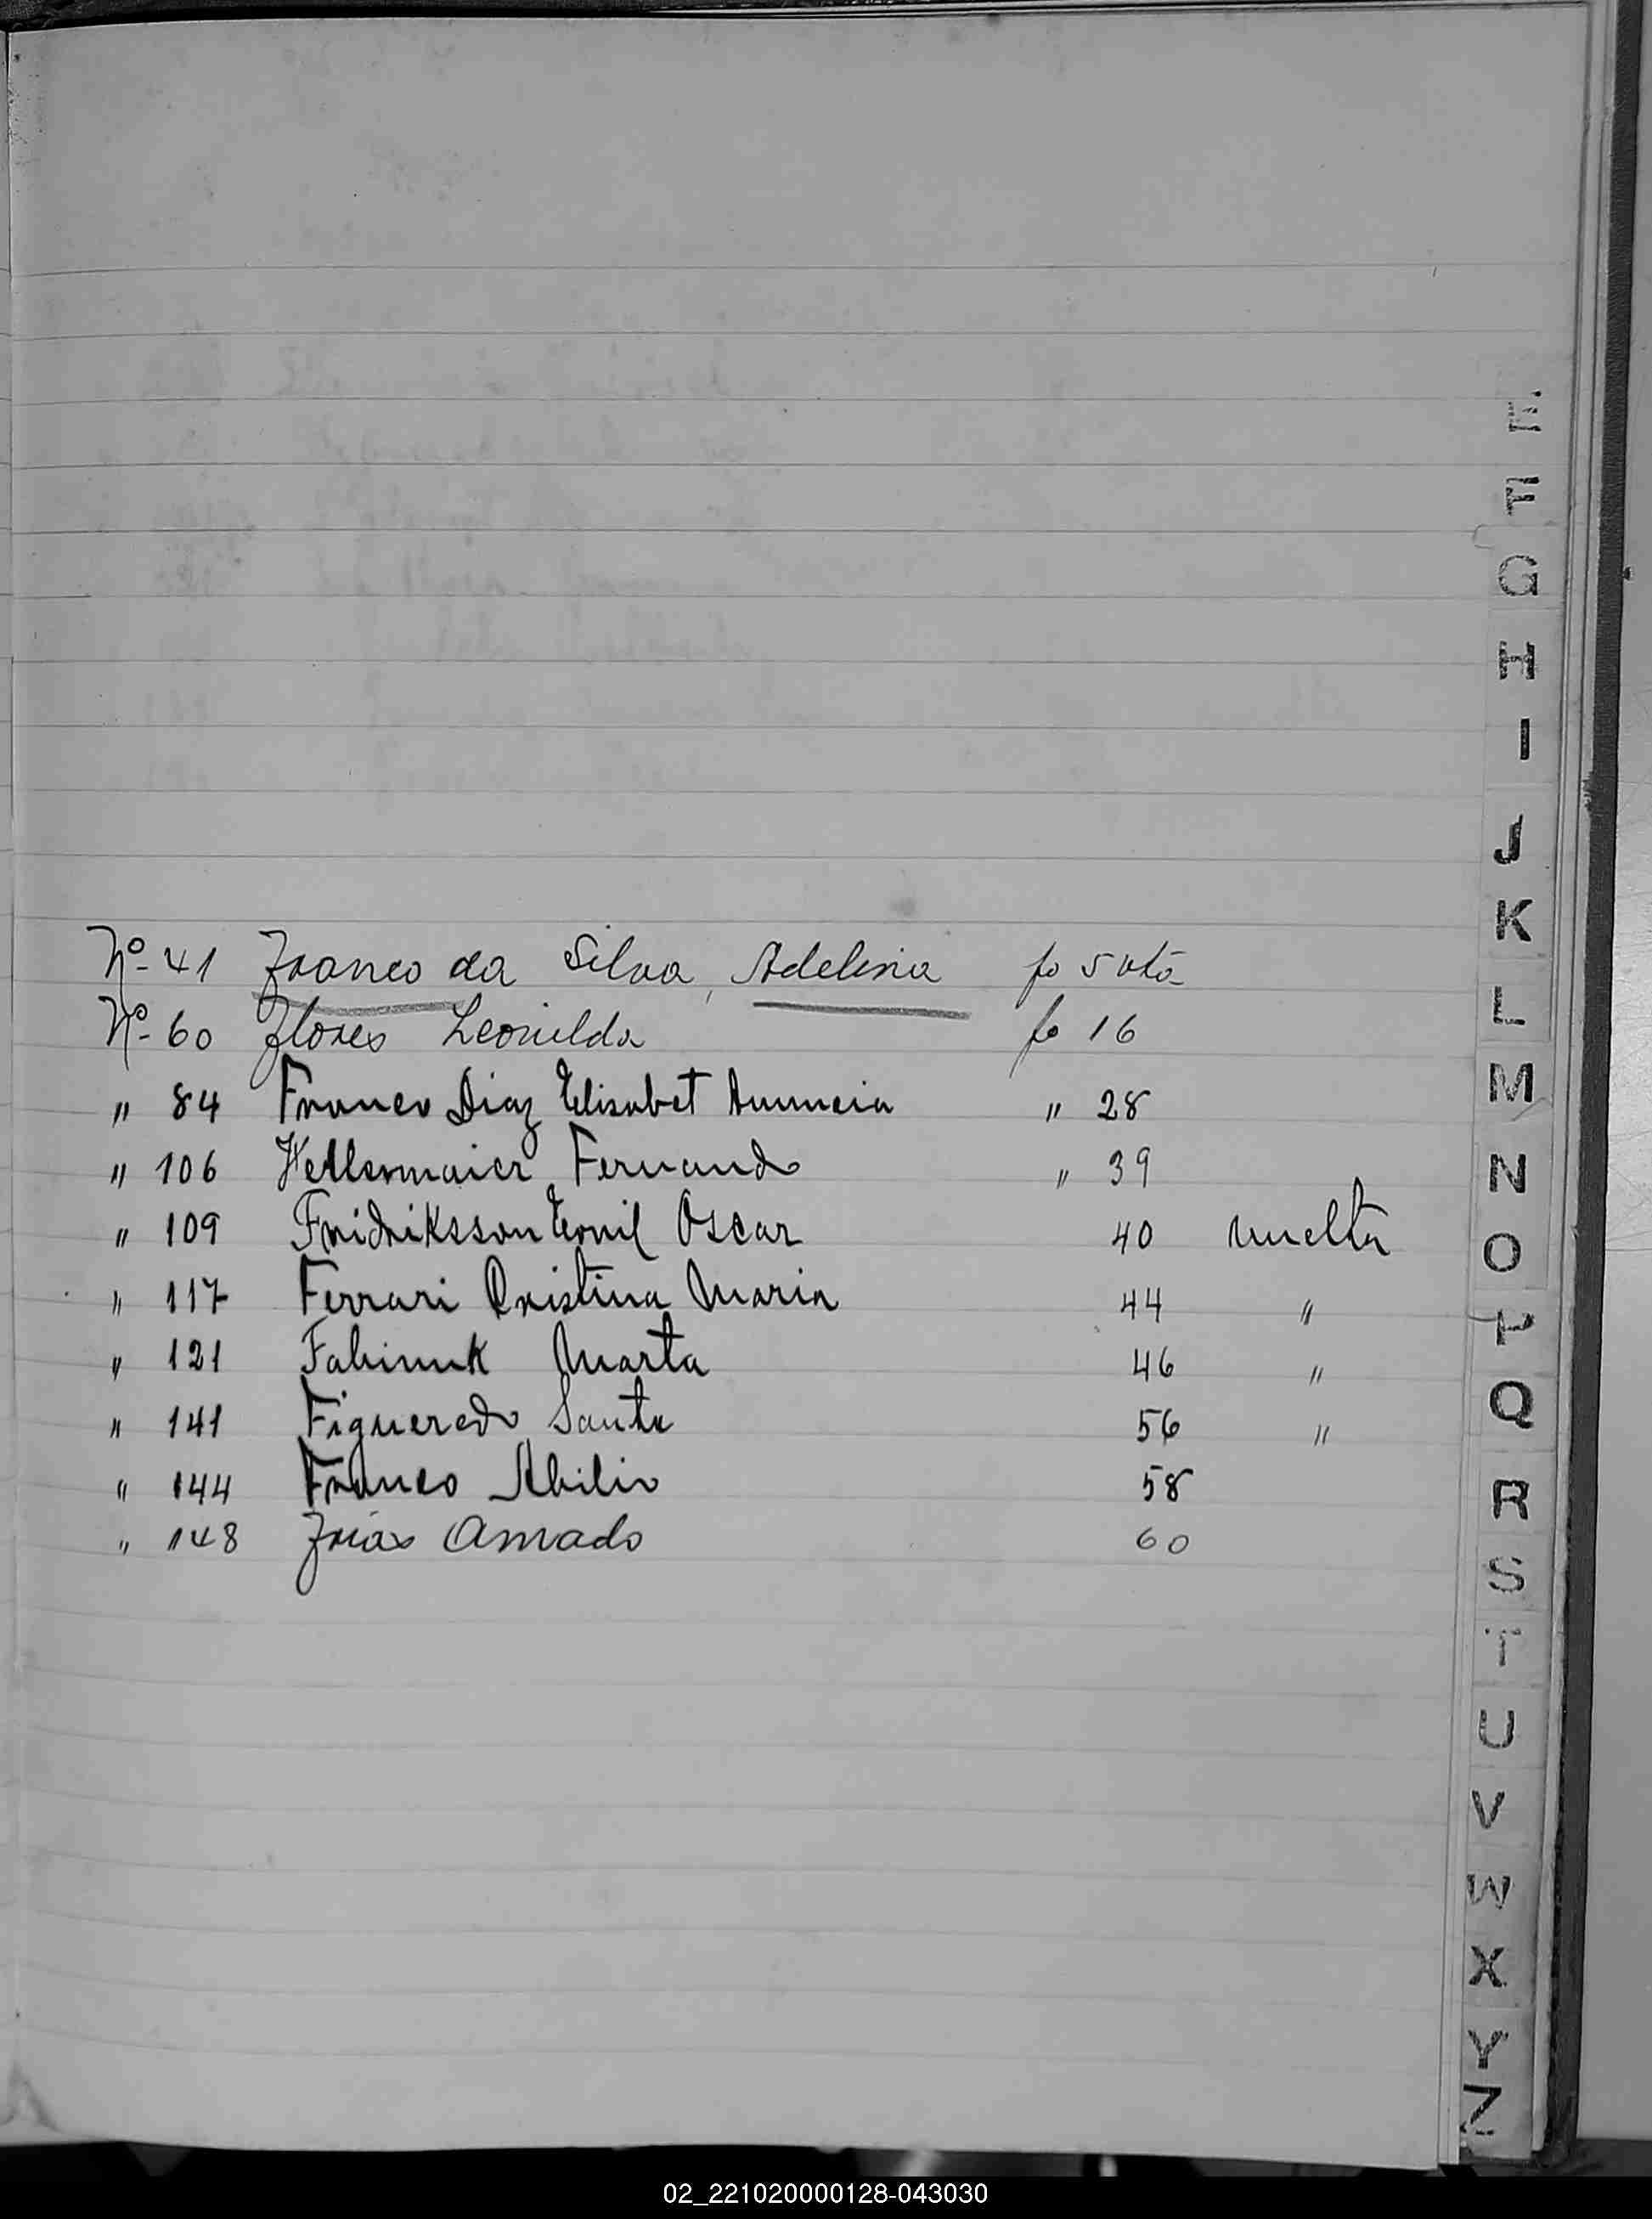 Nº 41 Franco da Silva, Adelina fo 5 vta
Nº 60 Flores Leonilda fo 16
" 84 Franco Diaz Elisabet Anuncia " 28
" 106 Hellermaier Fernando " 39
" 109 Fridriksson Emil Oscar 40 vuelta
" 117 Ferrari Cristina Maria 44 "
" 121 Marta 46 "
" 141 Figueredo Santa 56 "
" 144 Franco Abilio 58
" 148 Frias Amado 60
E
F
G
H
I
J
K
L
M
N
O
P
Q
R
S
T
U
V
W
X
Y
Z
02_221020000128-043030